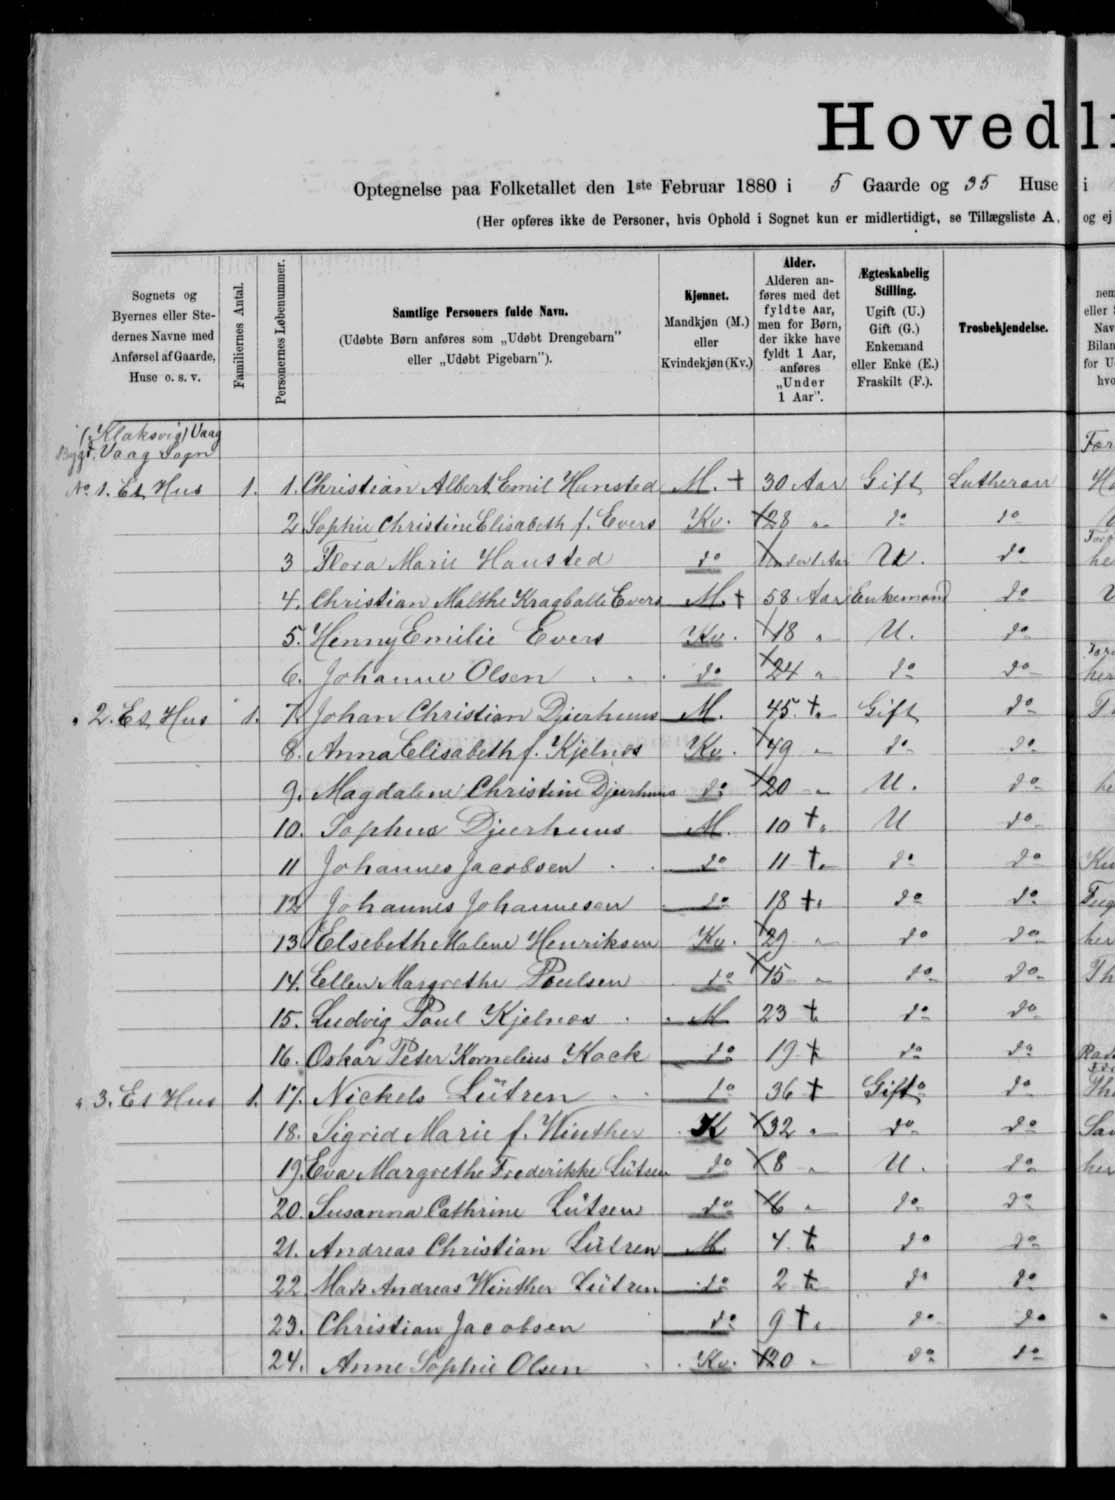 Hovedli
Optegnelse paa Folketallet den 1ste Februar 1880 i 5 Gaarde og 35 Huse i
(Her opføres ikke de Personer, hvis Ophold i Sognet kun er midlertidigt, se Tillægsliste A, og ej
Sognets og Byernes eller Stedernes Navne med Anførsel af Gaarde, Huse o. s. v.
Familiernes Antal.
Personernes Løbenummer.
Samtlige Personers fulde Navn.
(Udøbte Børn anføres som „Udøbt Drengebarn" eller „Udøbt Pigebarn").
Kjønnet.
Mandkjøn (M.) eller Kvindekjøn (Kv.)
Alder.
Alderen anføres med det fyldte Aar, men for Børn, der ikke have fyldt 1 Aar, anføres „Under 1 Aar".
Ægteskabelig Stilling.
Ugift (U.) Gift (G.) Enkemand eller Enke (E.) Fraskilt (F.).
Trosbekjendelse.
(Klaksvig) Vaag
Bygd. Vaag Sogn
No 1. Et Hus 1. 1. Christian Albert Emil Hansted M. + 30 Aar Gift Lutheran
2 Sophie Christine Elisabeth f. Evers Kv. 28 " do do
3 Flora Marie Hansted do Under 1 Aar U. do
4. Christian Malthe Kragballe Evers M. + 58 Aar Enkemand do
5. Henny Emilie Evers Kv. 18 " U. do
6. Johanne Olsen do 24 " do do
" 2. Et Hus 1. 7. Johan Christian Djurhuus M. 45 + " Gift do
8. Anna Elisabeth f. Kjelnæs Kv. 49 " do do
9. Magdalene Christine Djurhuus do 20 " U. do
10. Sophus Djurhuus M. 10 + " U do
11 Johannes Jacobsen do 11 + " do do
12 Johannes Johannesen do 18 + " do do
13 Elsebeth Malene Henriksen Kv. 29 " do do
14. Ellen Margrethe Poulsen do 15 " do do
15. Ludvig Poul Kjelnæs M 23 + do do
16. Oskar Peter Kornelius Kock do 19 + do do
" 3. Et Hus 1. 17. Nickels Lützen do 36 + Gift do
18. Sigrid Marie f. Winther K 32 " do do
19. Eva Margrethe Frederikke Lützen do 8 " U. do
20. Susanna Cathrine Lützen do 6 " do do
21. Andreas Christian Lützen M 4 + do do
22 Mads Andreas Winther Lützen do 2 + do do
23. Christian Jacobsen do 9 + " do do
24. Anne Sophie Olsen Kv. 20 " do do